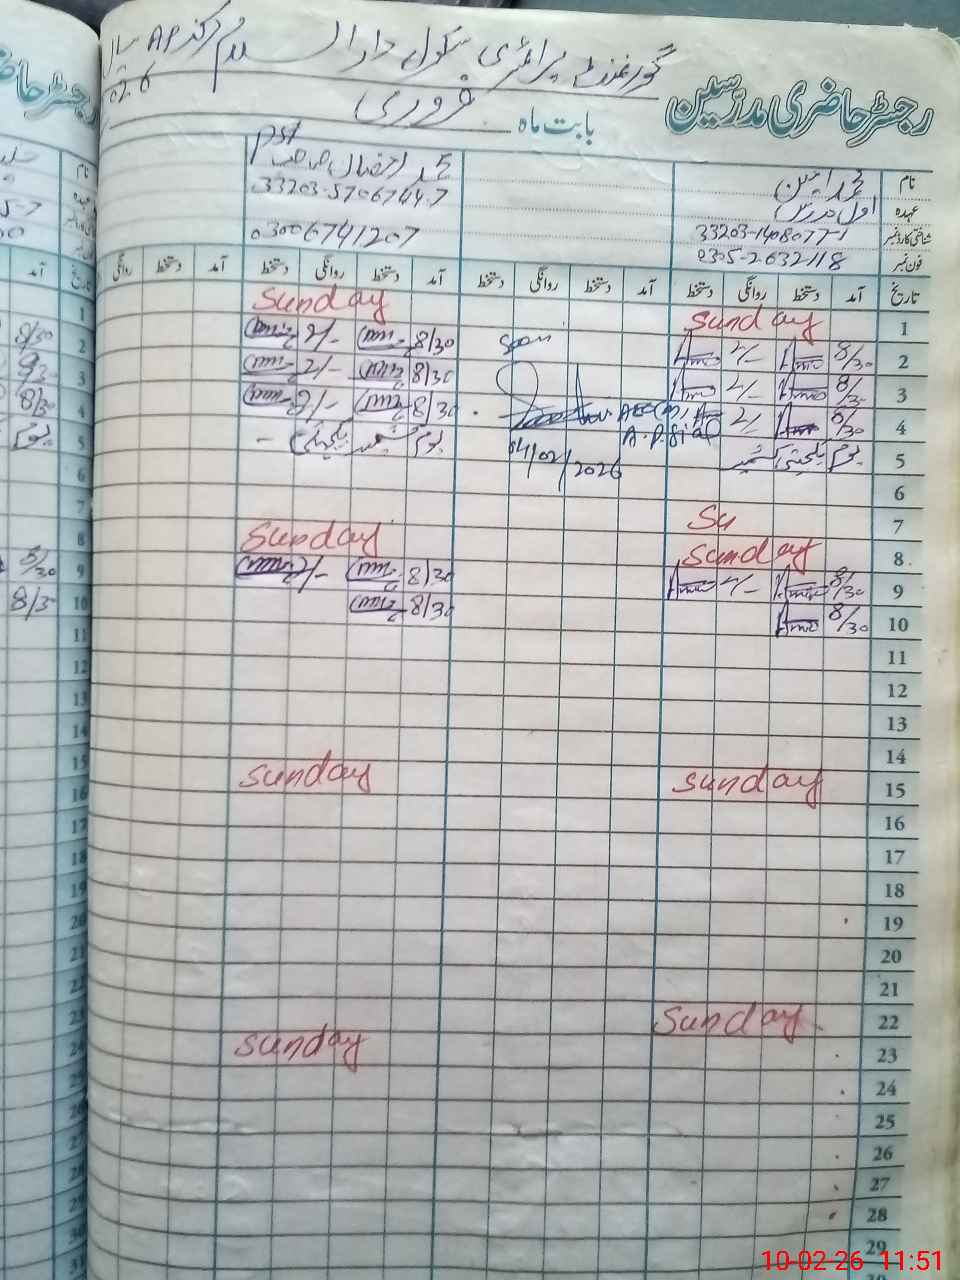 گورنمنٹ پرائمری سکول دارالسلام مرکز AP سیال
رجسٹر حاضری مدرسین
بابت ماہ فروری
نام محمد امین
عہدہ اول مدرس
شناختی کارڈ نمبر 33203-1408077-1
فون نمبر 0305-2632118
PST
33203-5706744-7
03006741207
تاریخ آمد دستخط روانگی دستخط آمد دستخط روانگی دستخط آمد دستخط روانگی دستخط آمد دستخط روانگی
1 Sunday Sunday
2 8/30 2/- seen 8/30 2/-
3 8/30 2/- 8/30 2/-
4 8/30 2/- AEO(M) 8/30 2/-
A.P Sial
5 یوم یکجہتی کشمیر 04/02/2026 یوم کشمیر یکجہتی -
6
7 Su
8 Sunday Sunday
9 8/30 2/- 8/30 2/-
10 8/30 8/30
11
12
13
14
15 Sunday Sunday
16
17
18
19
20
21
22 Sunday
23 Sunday
24
25
26
27
28
29
10-02-26 11:51